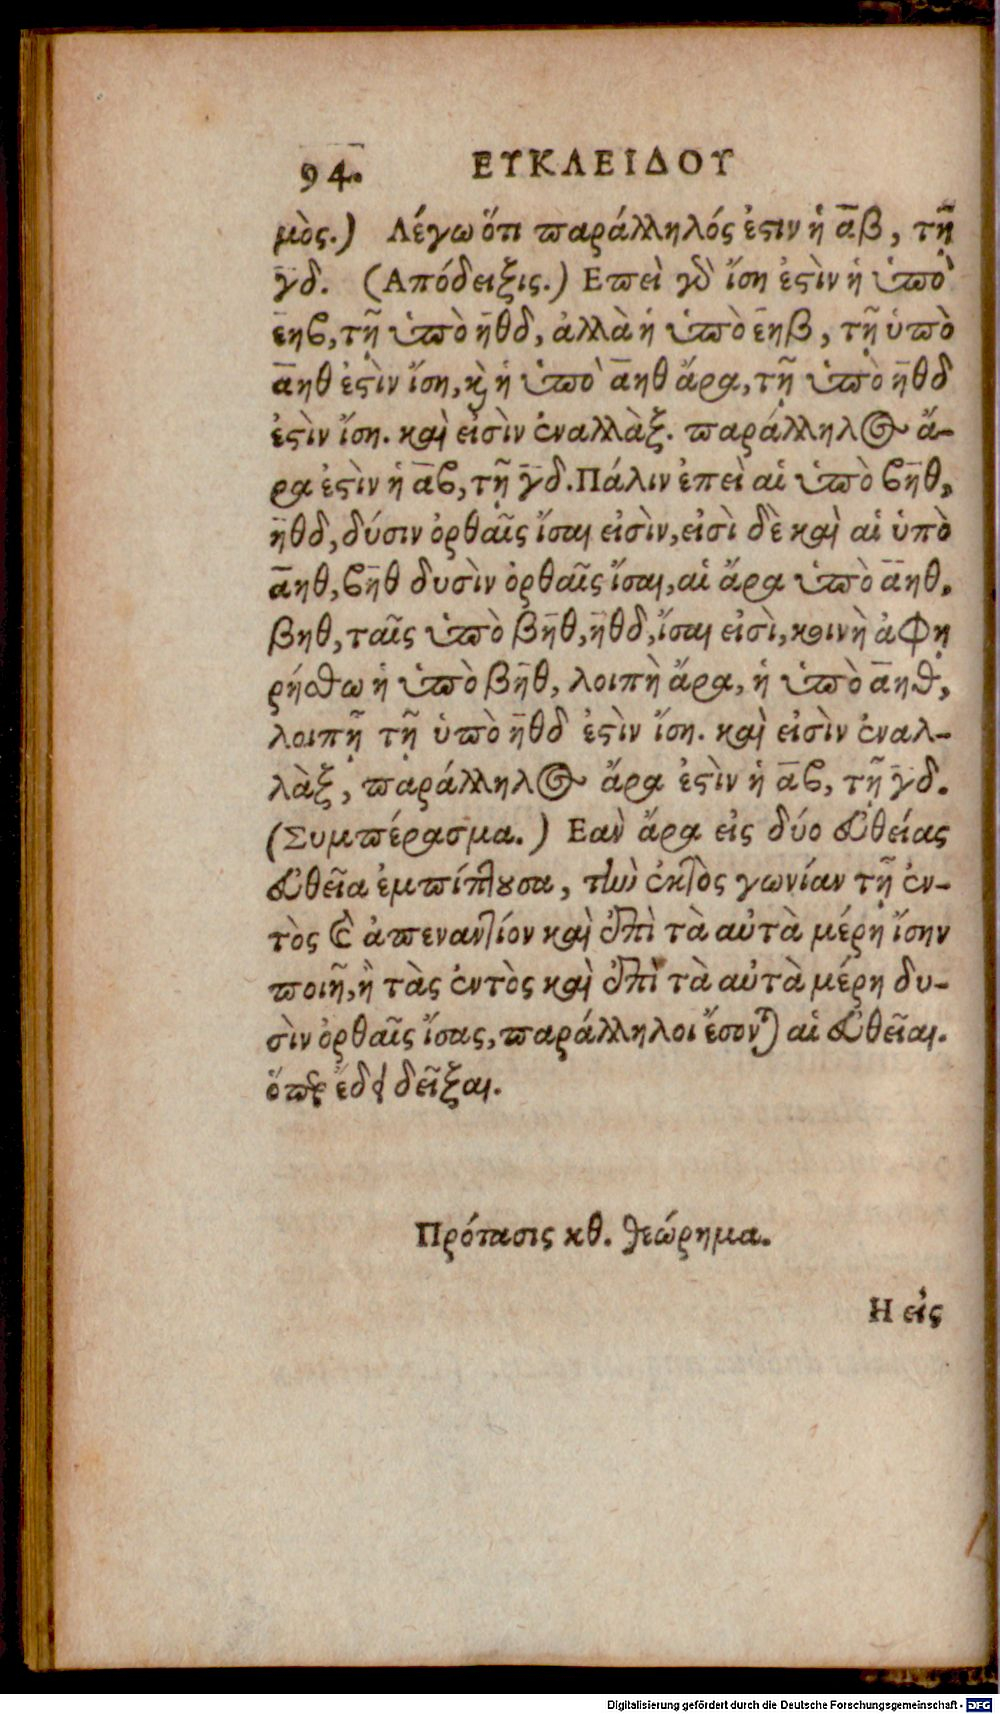 94. ΕΥΚΛΕΙΔΟΥ
μὸς.) Λέγω ὅτι παράλληλός ἐστιν ἡ α̅β, τῇ
γ̅δ. (Απόδειξις.) Επεὶ γὰρ ἴση ἐστὶν ἡ ὑπὸ
ε̅ηβ, τῇ ὑπὸ η̅θδ, ἀλλὰ ἡ ὑπὸ ε̅ηβ, τῇ ὑπὸ
α̅ηθ ἐστὶν ἴση, καὶ ἡ ὑπὸ α̅ηθ ἄρα, τῇ ὑπὸ η̅θδ
ἐστὶν ἴση. καὶ εἰσὶν ἐναλλὰξ. παράλληλος ἄ-
ρα ἐστὶν ἡ α̅β, τῇ γ̅δ. Πάλιν ἐπεὶ αἱ ὑπὸ βη̅θ,
η̅θδ, δύσιν ὀρθαῖς ἴσαι εἰσὶν, εἰσὶ δὲ καὶ αἱ ὑπὸ
α̅ηθ, βη̅θ δυσὶν ὀρθαῖς ἴσαι, αἱ ἄρα ὑπὸ α̅ηθ,
βηθ, ταῖς ὑπὸ βη̅θ, η̅θδ, ἴσαι εἰσὶ, κοινὴ ἀφῃ
ρήσθω ἡ ὑπὸ βη̅θ, λοιπὴ ἄρα, ἡ ὑπὸ α̅ηθ,
λοιπῇ τῇ ὑπὸ η̅θδ ἐστὶν ἴση. καὶ εἰσὶν ἐναλ-
λὰξ, παράλληλος ἄρα ἐστὶν ἡ α̅β, τῇ γ̅δ.
(Συμπέρασμα.) Εαν ἄρα εἰς δύο εὐθείας
εὐθεῖα ἐμπίπτουσα, τὴν ἐκτὸς γωνίαν τῇ ἐν-
τὸς καὶ ἀπεναντίον καὶ ἐπὶ τὰ αὐτὰ μέρη ἴσην
ποιῇ, ἢ τὰς ἐντὸς καὶ ἐπὶ τὰ αὐτὰ μέρη δυ-
σὶν ὀρθαῖς ἴσας, παράλληλοι ἔσονται αἱ εὐθεῖαι.
ὅπερ ἔδει δεῖξαι.
Πρότασις κθ. θεώρημα.
Η εἰς
Digitalisierung gefördert durch die Deutsche Forschungsgemeinschaft - DFG